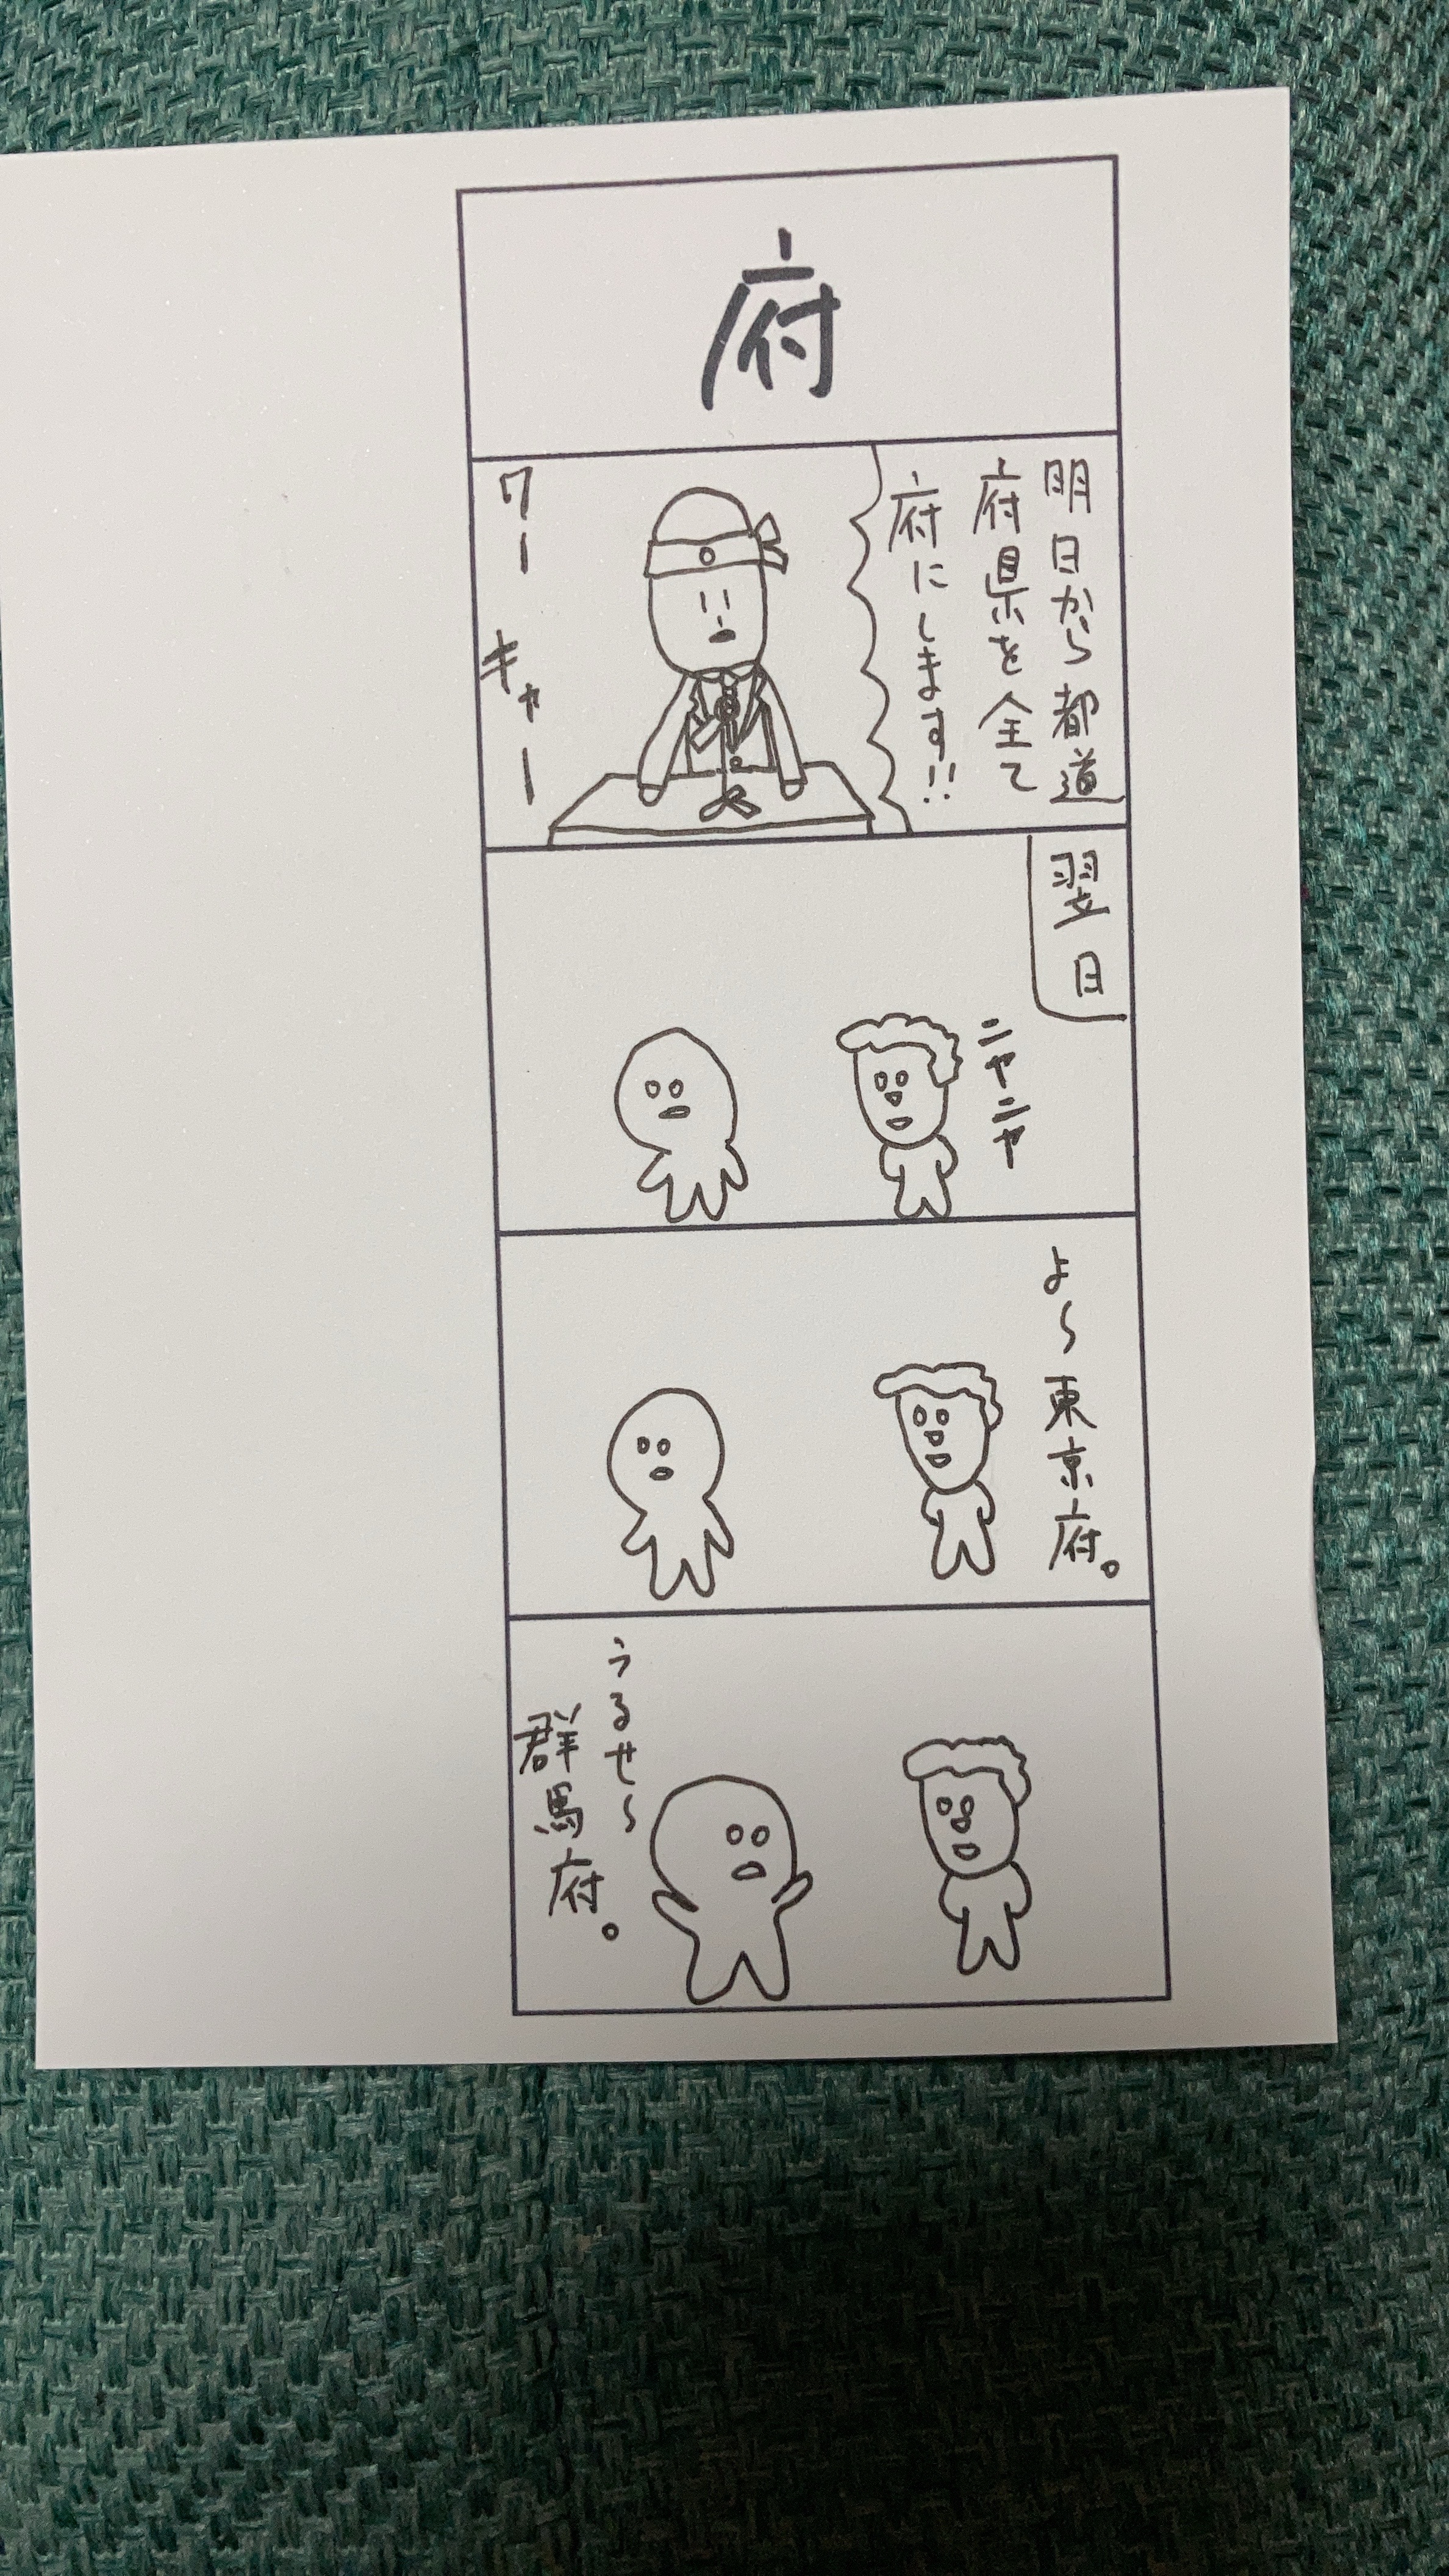 府
明日から都道
府県を全て
府にします!!
ワー
キャー
翌日
ニヤニヤ
よ〜東京府。
うるせ〜
群馬府。